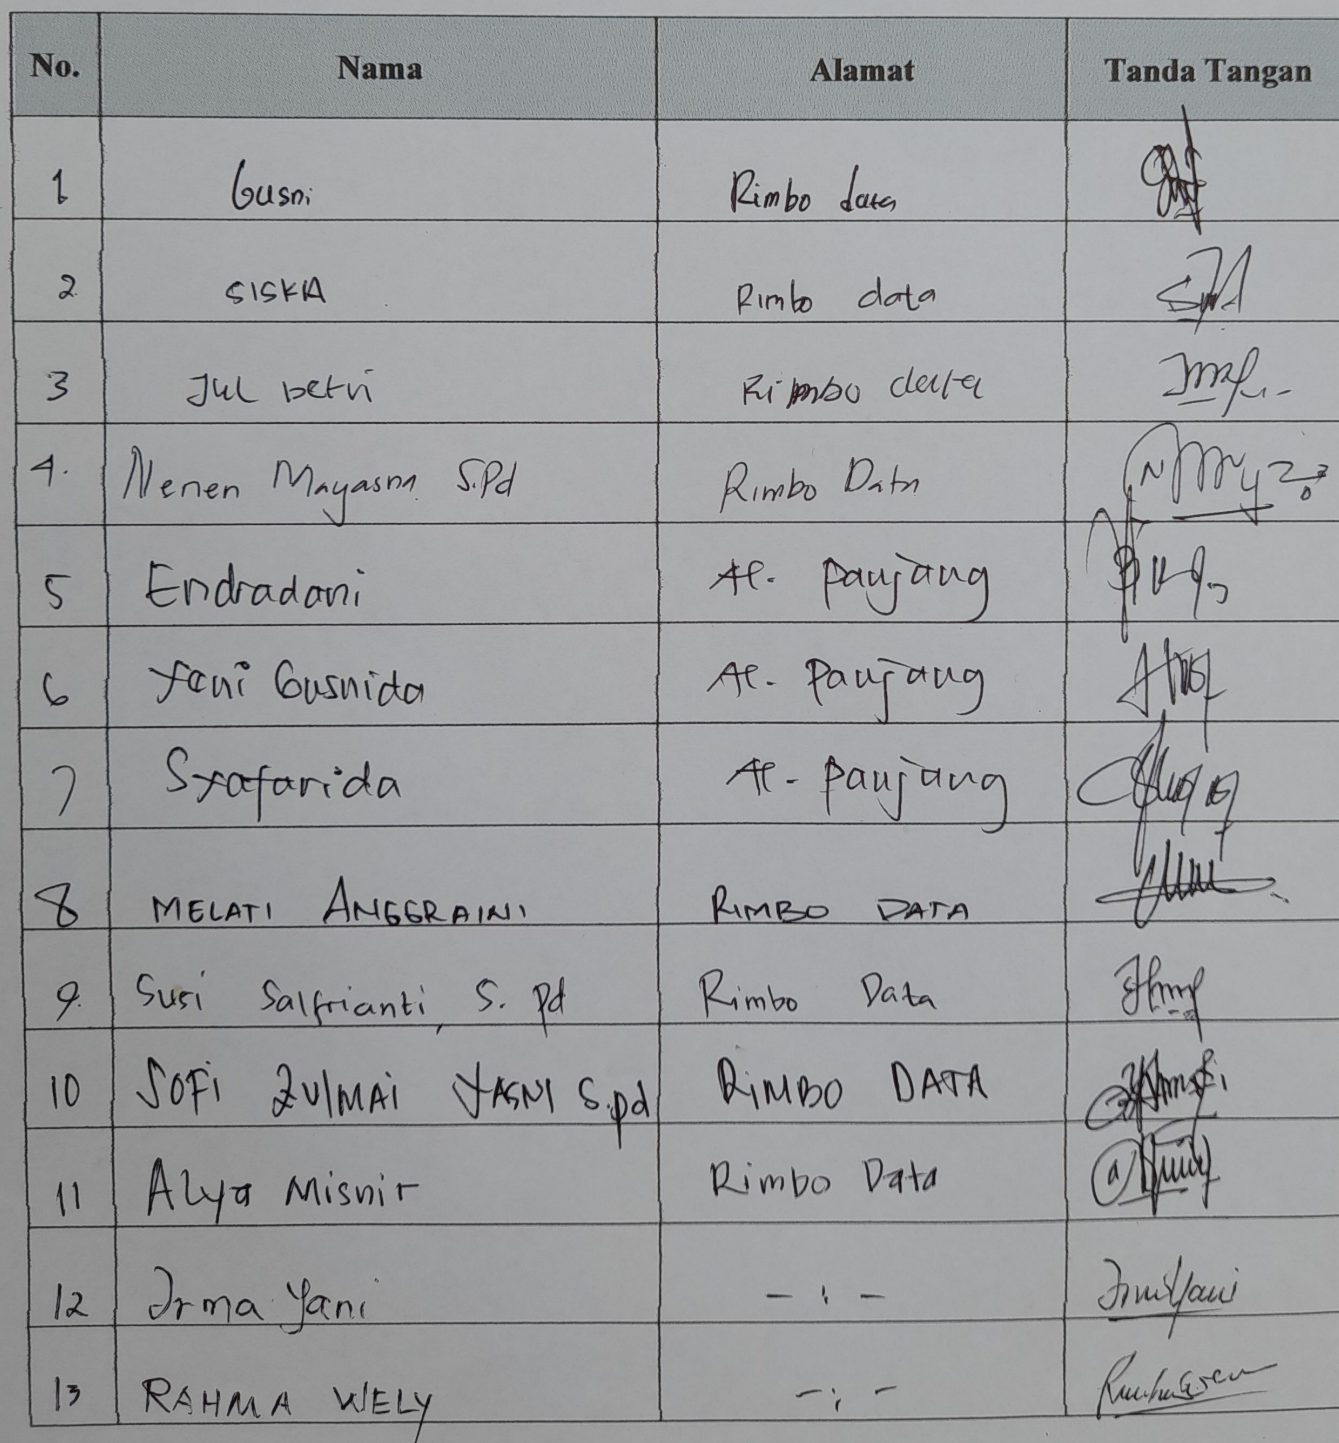 No. Nama Alamat Tanda Tangan
1 Gusni Rimbo data
2 SISKA Rimbo data
3 Jul betri Rimbo data
4. Nenen Mayasna S.Pd Rimbo Data
5 Endradani Al. Panjang
6 Yani Gusnida Al. Panjang
7 Syafarida Al - Panjang
8 MELATI ANGGRAINI RIMBO DATA
9. Susi Salfrianti, S. Pd Rimbo Data
10 SOFI ZULMAI YASNI S.pd RIMBO DATA
11 Alya Misnir Rimbo Data
12 Irma Yani - : -
13 RAHMA WELY - : -